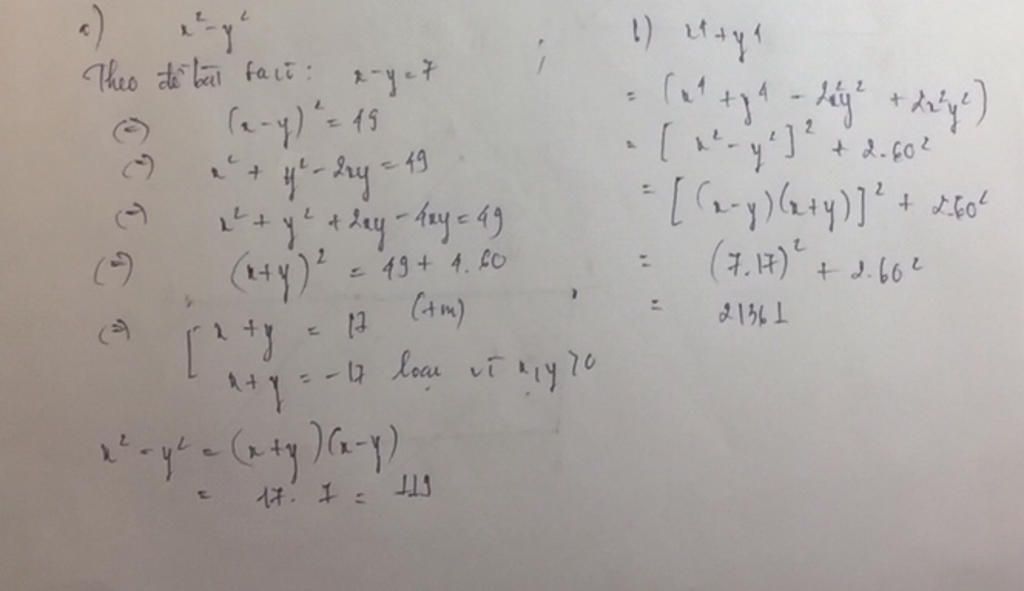 a) x² - y²
Theo đề bài ta có: x - y = 7
(=) (x - y)² = 49
(=) x² + y² - 2xy = 49
(=) x² + y² + 2xy - 4xy = 49
(=) (x+y)² = 49 + 4.60
(=) [ x + y = 17 (tm)
x + y = -17 loại vì x, y > 0
x² - y² = (x+y)(x-y)
= 17. 7 = 119
b) x⁴ + y⁴
= (x⁴ + y⁴ - 2x²y² + 2x²y²)
= [x² - y²]² + 2.60²
= [(x-y)(x+y)]² + 2.60²
= (7.17)² + 2.60²
= 21361